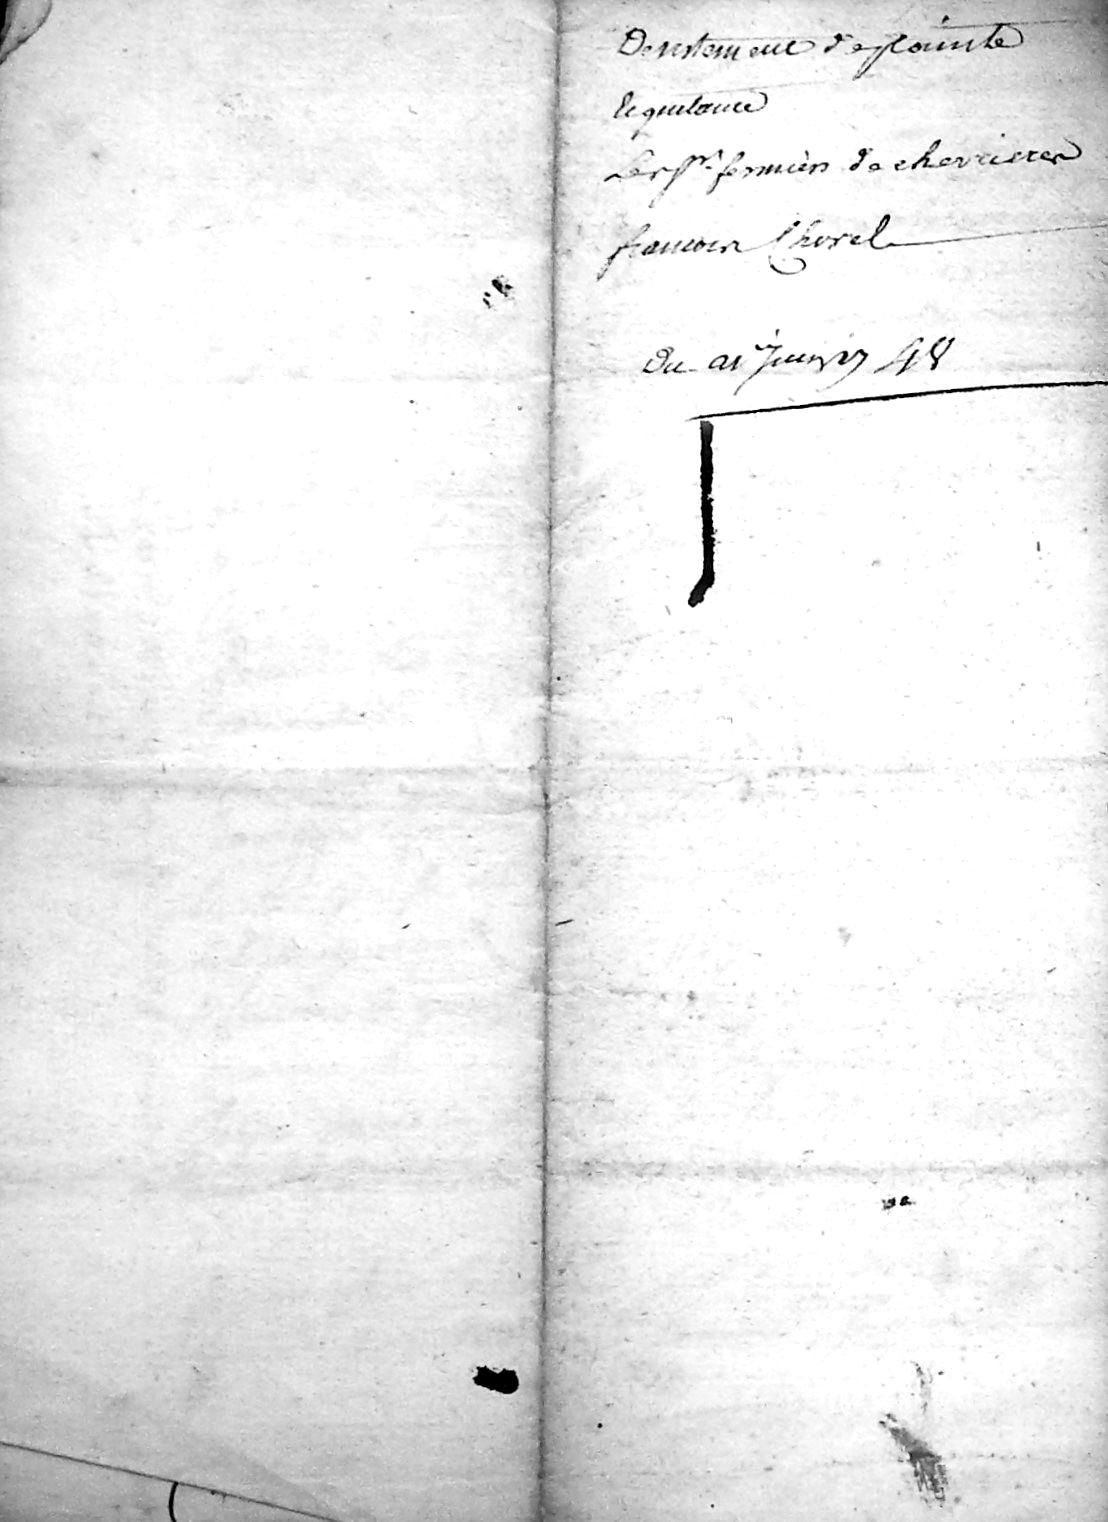 Desistement de plainte
et quitance
Les srs fermiers de chevrieres
francois Chorel
Du 21 juin 48